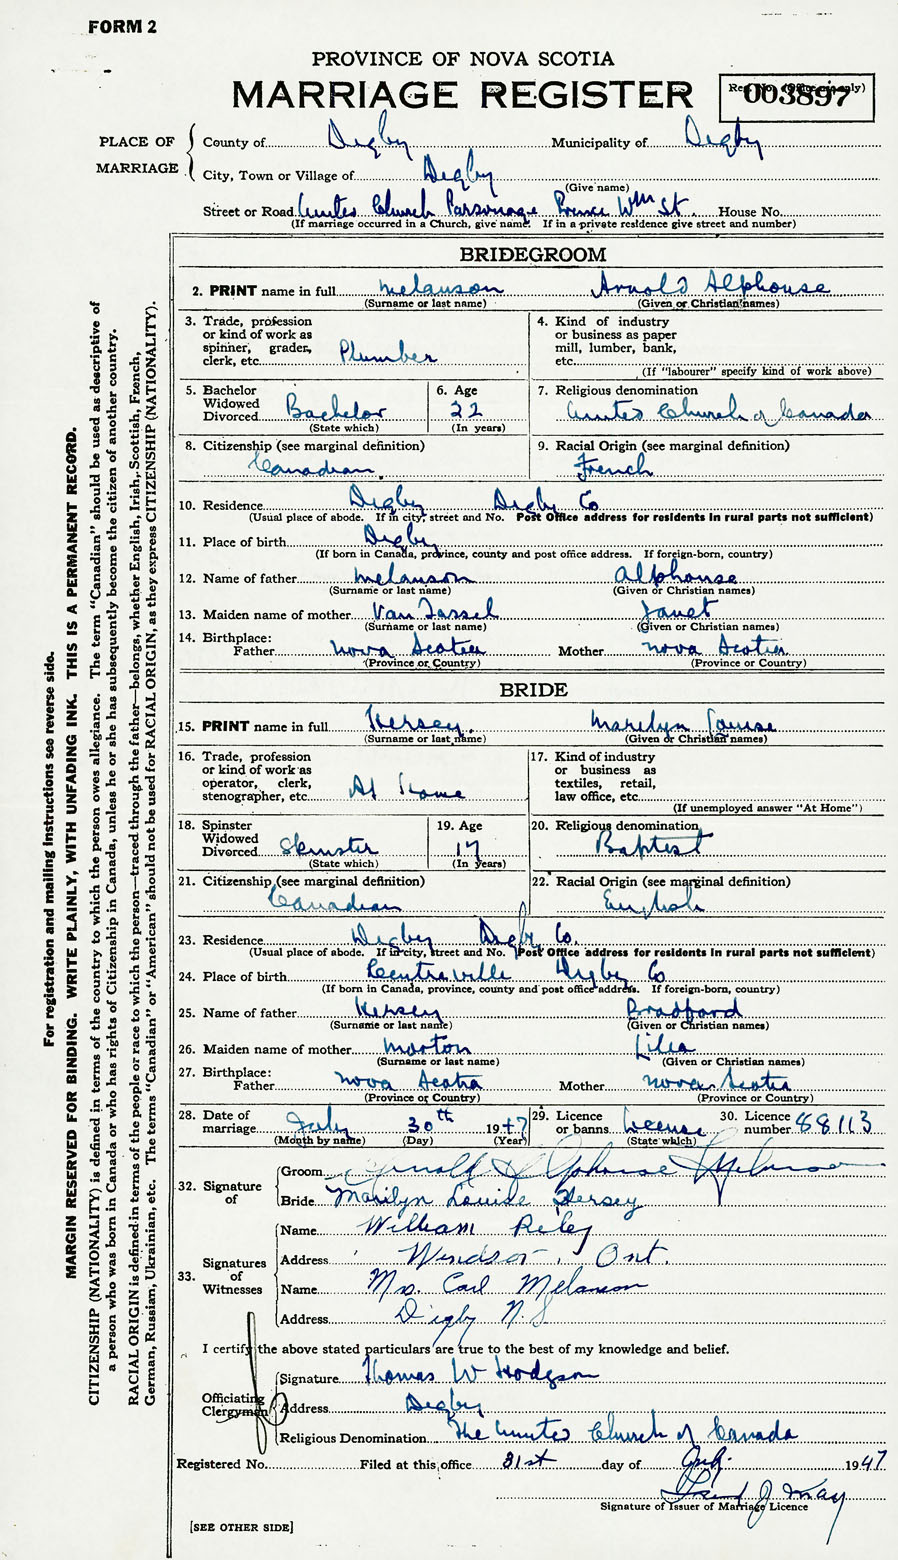 FORM 2
PROVINCE OF NOVA SCOTIA
MARRIAGE REGISTER
Reg. No. (Office use only)
003897
PLACE OF MARRIAGE
County of Digby Municipality of Digby
City, Town or Village of Digby
(Give name)
Street or Road United Church Parsonage Prince Wm St. House No.
(If marriage occurred in a Church, give name. If in a private residence give street and number)
BRIDEGROOM
2. PRINT name in full Melanson Arnold Alphonse
(Surname or last name) (Given or Christian names)
3. Trade, profession or kind of work as spinner, grader, clerk, etc. Plumber
4. Kind of industry or business as paper mill, lumber, bank, etc.
(If "labourer" specify kind of work above)
5. Bachelor Widowed Divorced Bachelor
(State which)
6. Age 22
(In years)
7. Religious denomination United Church of Canada
8. Citizenship (see marginal definition) Canadian
9. Racial Origin (see marginal definition) French
10. Residence Digby Digby Co
(Usual place of abode. If in city, street and No. Post Office address for residents in rural parts not sufficient)
11. Place of birth Digby
(If born in Canada, province, county and post office address. If foreign-born, country)
12. Name of father Melanson Alphonse
(Surname or last name) (Given or Christian names)
13. Maiden name of mother Van Tassel Janet
(Surname or last name) (Given or Christian names)
14. Birthplace:
Father Nova Scotia Mother Nova Scotia
(Province or Country) (Province or Country)
BRIDE
15. PRINT name in full Hersey Marilyn Louise
(Surname or last name) (Given or Christian names)
16. Trade, profession or kind of work as operator, clerk, stenographer, etc. At Home
17. Kind of industry or business as textiles, retail, law office, etc.
(If unemployed answer "At Home")
18. Spinster Widowed Divorced Spinster
(State which)
19. Age 17
(In years)
20. Religious denomination Baptist
21. Citizenship (see marginal definition) Canadian
22. Racial Origin (see marginal definition) English
23. Residence Digby Digby Co.
(Usual place of abode. If in city, street and No. Post Office address for residents in rural parts not sufficient)
24. Place of birth Centreville Digby Co
(If born in Canada, province, county and post office address. If foreign-born, country)
25. Name of father Hersey Bradford
(Surname or last name) (Given or Christian names)
26. Maiden name of mother Morton Lilia
(Surname or last name) (Given or Christian names)
27. Birthplace:
Father Nova Scotia Mother Nova Scotia
(Province or Country) (Province or Country)
28. Date of marriage July 30th 1947
(Month by name) (Day) (Year)
29. Licence or banns License
(State which)
30. Licence number 88113
32. Signature of
Groom Arnold Alphonse Melanson
Bride Marilyn Louise Hersey
33. Signatures of Witnesses
Name William Riley
Address Windsor, Ont.
Name Mrs. Carl Melanson
Address Digby N.S
I certify the above stated particulars are true to the best of my knowledge and belief.
Officiating Clergyman
Signature Thomas W Hodgson
Address Digby
Religious Denomination The United Church of Canada
Registered No. Filed at this office 31st day of July 1947
J May
Signature of Issuer of Marriage Licence
[SEE OTHER SIDE]
For registration and mailing instructions see reverse side.
MARGIN RESERVED FOR BINDING. WRITE PLAINLY, WITH UNFADING INK. THIS IS A PERMANENT RECORD.
CITIZENSHIP (NATIONALITY) is defined in terms of the country to which the person owes allegiance. The term "Canadian" should be used as descriptive of
a person who was born in Canada or who has rights of Citizenship in Canada, unless he or she has subsequently become the citizen of another country.
RACIAL ORIGIN is defined in terms of the people or race to which the person—traced through the father—belongs, whether English, Irish, Scottish, French,
German, Russian, Ukrainian, etc. The terms "Canadian" or "American" should not be used for RACIAL ORIGIN, as they express CITIZENSHIP (NATIONALITY).